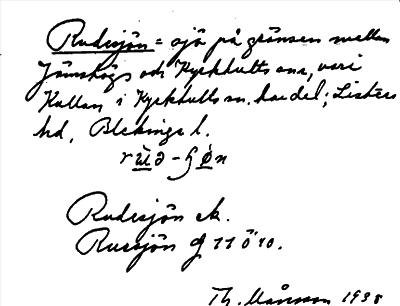 Rudesjön = sjö på gränsen mellan
Jämshögs och Kyrkhults snr, vari
Kullan i Kyrkhults sn. har del; Listers
hd, Blekinge l.
Rudesjön ek.
Russjön g 11 ö 10.
Th. Månsson 1938